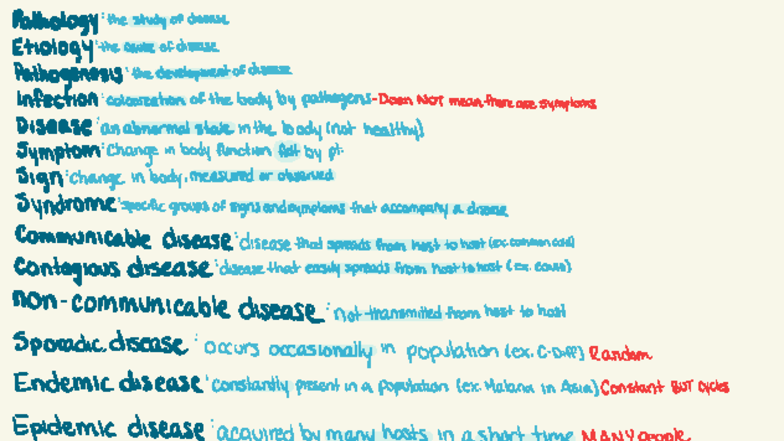 Pathology: the study of disease
Etiology: the cause of disease
Pathogenesis: the development of disease
Infection: colonization of the body by pathogens - Does NOT mean there are symptoms
Disease: an abnormal state in the body (not healthy)
Symptom: Change in body function felt by pt.
Sign: change in body, measured or observed
Syndrome: specific groups of signs and symptoms that accompany a disease
Communicable disease: disease that spreads from host to host (ex. common cold)
Contagious disease: disease that easily spreads from host to host (ex. covid)
non-communicable disease: not transmitted from host to host
Sporadic disease: occurs occasionally in population (ex. C-Diff) Random
Endemic disease: constantly present in a population (ex. Malaria in Asia) Constant BUT cycles
Epidemic disease: acquired by many hosts in a short time MANY people